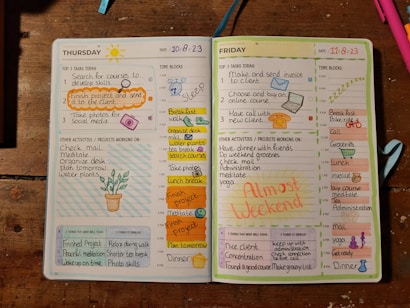 THURSDAY
DATE: 10-8-23
TOP 3 TASKS TODAY
TIME BLOCKS
1 Search for courses to
develop skills
2 Finish project and send
it to the client
3 Take photos for
social media
OTHER ACTIVITIES / PROJECTS WORKING ON
Check mail
Meditate
Organize desk
Plan tomorrow
Water plants
Sleep
Breakfast
walk
Organize desk
mail
Water plants
tea break
Search courses
Take photos
Lunch break
Finish
project
Finish
project
Meditate
Plan tomorrow
Dinner
Finished Project
Peaceful meditation
Woke up on time
Relax during walk
Shorter tea break
Photo skills
FRIDAY
DATE: 11-8-23
TOP 3 TASKS TODAY
TIME BLOCKS
1 Make and send invoice
to client
2 Choose and buy an
online course
3 Have call with
new client
OTHER ACTIVITIES / PROJECTS WORKING ON
Have dinner with friends
Do weekend groceries
Check mail
Administration
meditate
yoga
Almost
Weekend
Breakfast
Call
Groceries
Lunch
invoice
Buy course
meditate
Tea
Administration
Mail
yoga
Get ready
Dinner
Nice client
Concentration
Found a good course
Keep up with
administration
Check connection
before call
Make grocery list